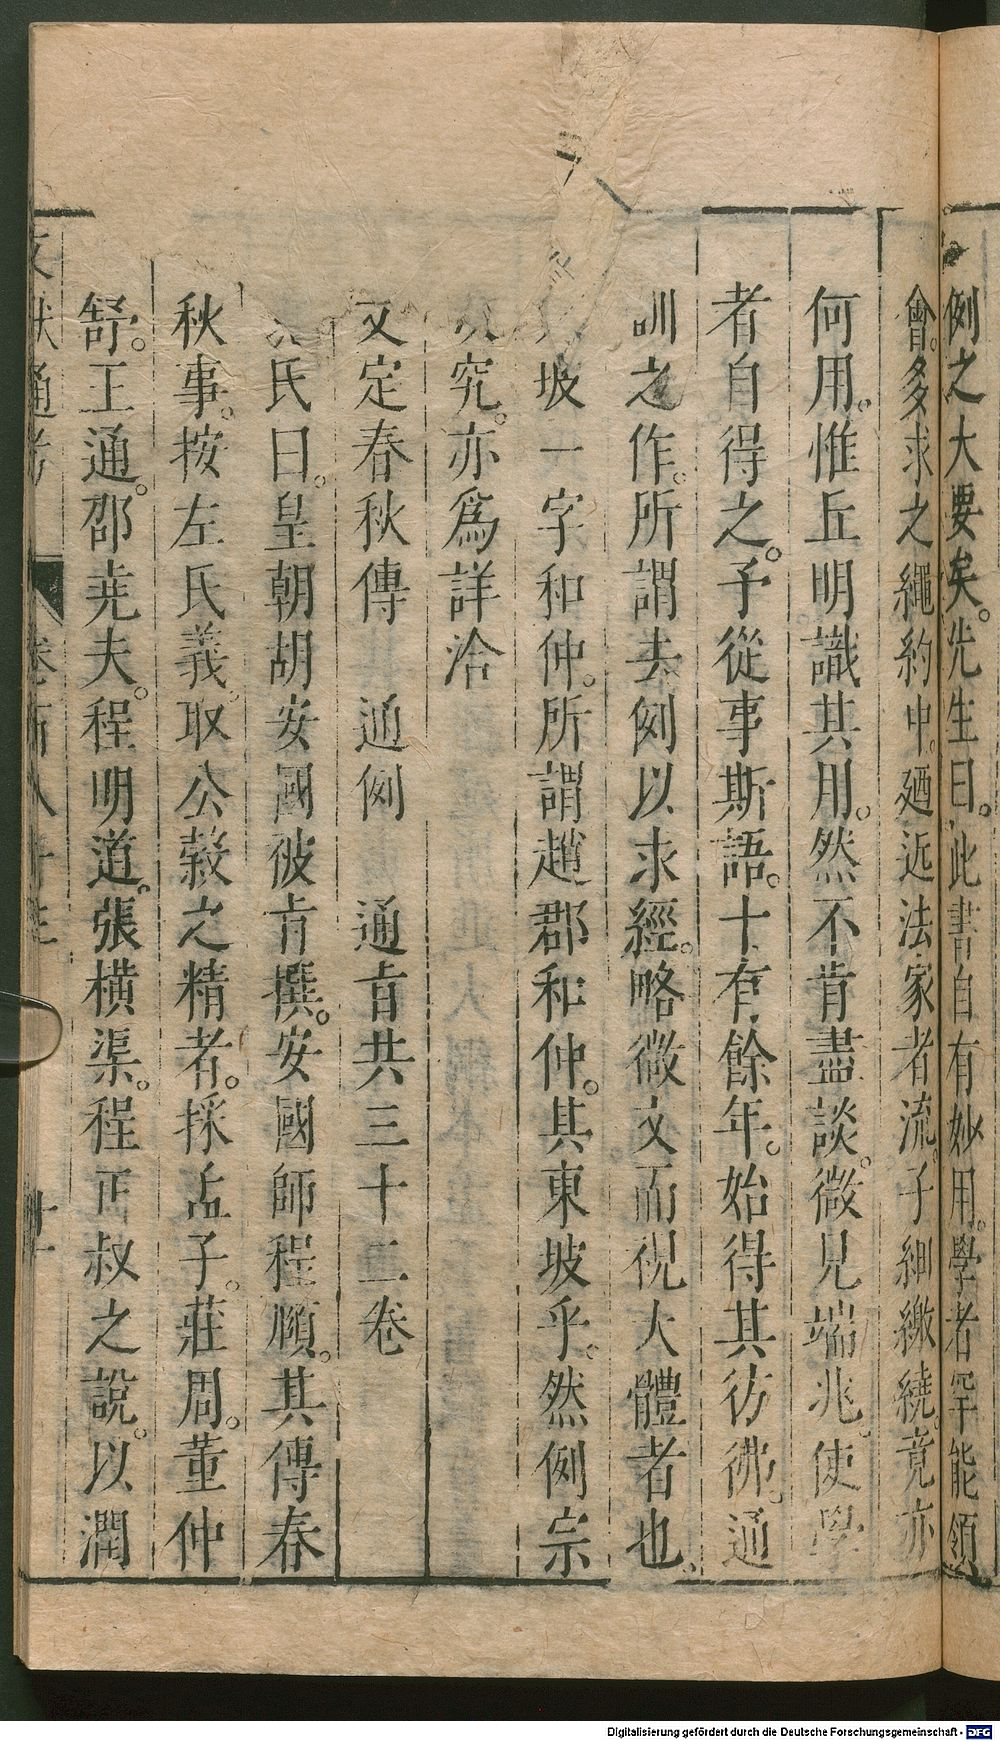 例之大要矣。先生曰。此書自有妙用。學者罕能領
會。多求之繩約中。廼近法家者流。子細繳繞。竟亦
何用。惟丘明識其用。然不肯盡談。微見端兆。使學
者自得之。予從事斯語。十有餘年。始得其彷彿。通
訓之作。所謂去例以求經。略微文而視大體者也。
坡一字和仲。所謂趙郡和仲。其東坡乎。然例宗
究。亦爲詳洽
文定春秋傳 通例 通旨共三十二卷
氏曰。皇朝胡安國被旨撰。安國師程頤。其傳春
秋事。按左氏義。取公穀之精者。採孟子。莊周。董仲
舒。王通。邵堯夫。程明道。張橫渠。程正叔之說。以潤
文獻通考 卷
Digitalisierung gefördert durch die Deutsche Forschungsgemeinschaft - DFG